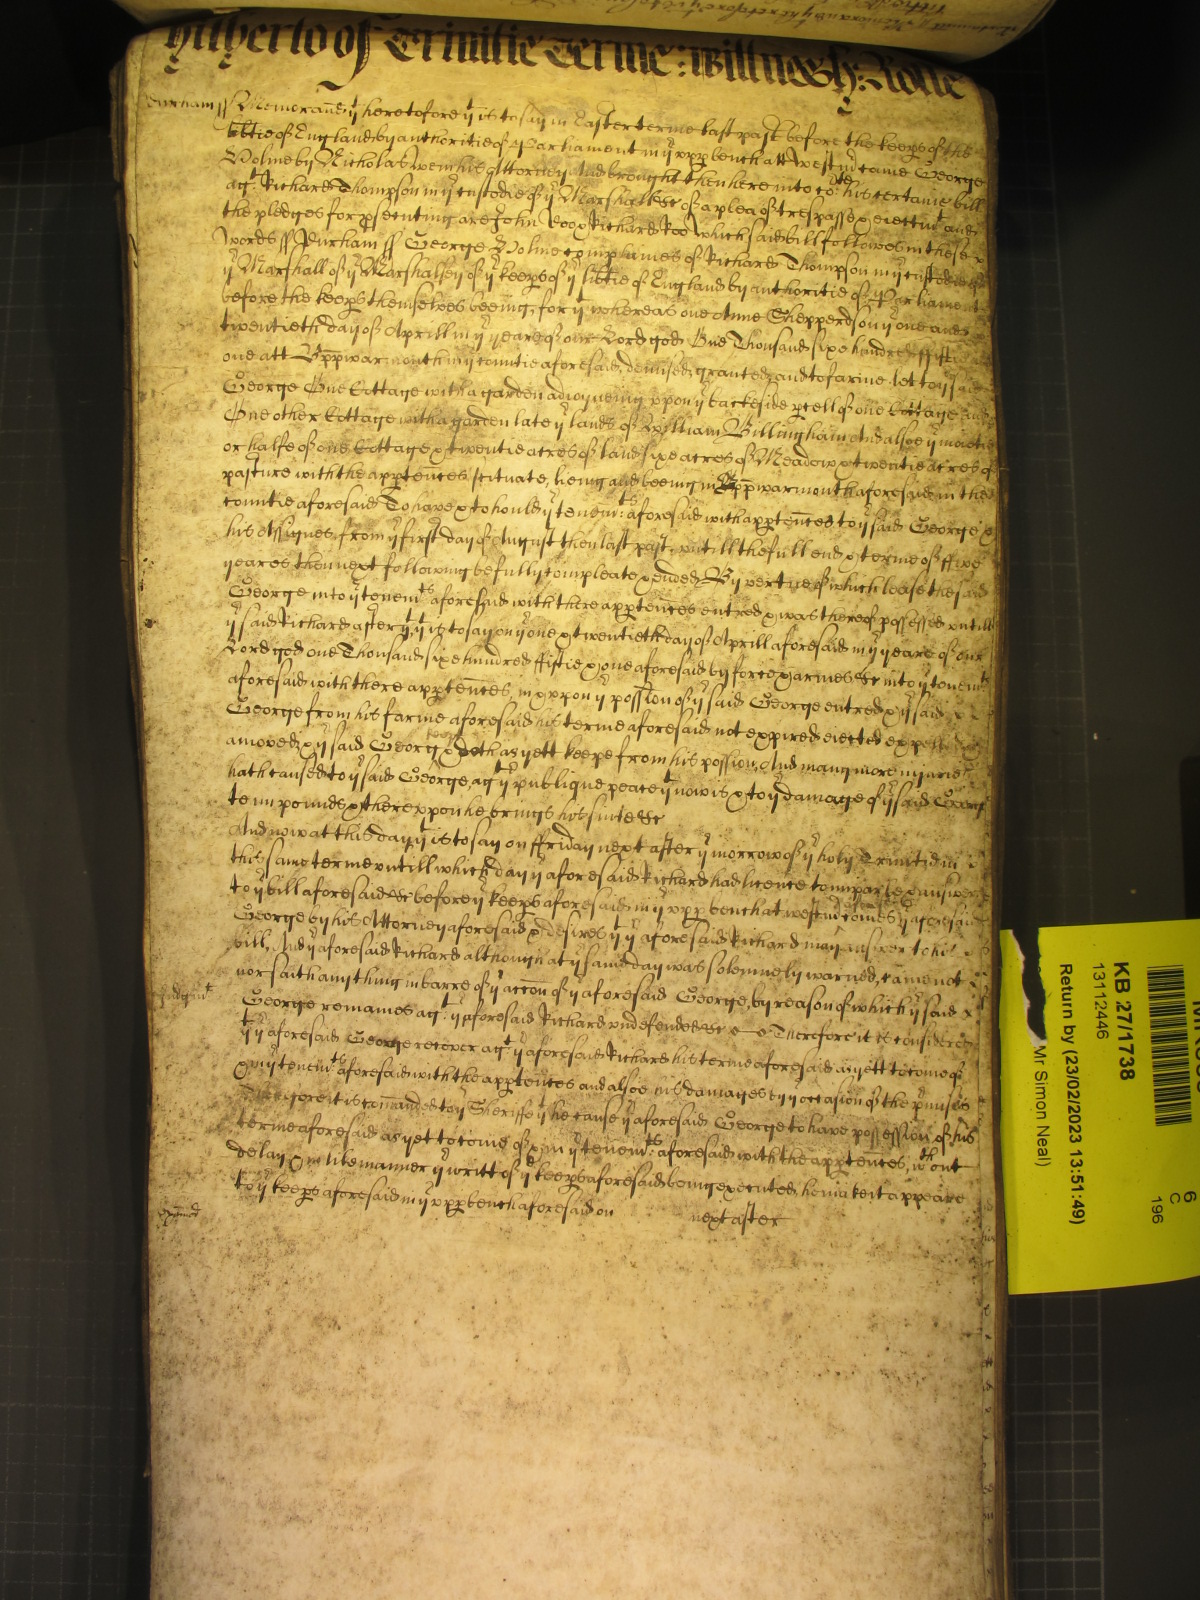 Hitherto of Trinitie Terme : Wittnes H: Rolle
Durham ss Memorand yt heretofore yt is to say in Easter terme last past before the keeps of the
libtie of England by authoritie of Parliament in ye upp bench att Westmr came George
Dolme by Nicholas his Attorney And brought then here into ye Cot his certaine bill
agt Richard Thompson in ye custodie of ye Marshall &c of a plea of trespasse & eiectmt and
the pledges for psecuting are John Doo & Richard Roo which said bill followes in these
words ss Durham ss George Dolme complaines of Richard Thompson in ye custodie of
ye Marshall of ye Marshalsey of ye keeps of ye libtie of England by authoritie of Parliament
before the keeps themselves beeing, for yt whereas one Anne Shepperdson ye one and
twentieth day of Aprill in ye yeare of our Lord god One Thousand six hundred fiftie
one att Uppwarmouth in ye countie aforesaid, demised, granted, and to farme let to ye said
George One Cottage with a garden adioyneing uppon ye backeside pcell of one Cottage And
One other Cottage with a garden late ye lands of William Billingham And alsoe ye moietie
or halfe of one Cottage & twentie acres of land sixe acres of Meadow & twentie acres of
pasture with the apptences scituate, lieing and beeing in Uppwarmouth aforesaid in the
countie aforesaid To have & to hould ye tenemts aforesaid with apptences to ye said George &
his Assignes, from ye first day of August then last past, untill the full end & terme of five
yeares then next following be fully compleate & ended, By vertue of which lease the said
George into ye tenemts aforesaid with there apptences entred & was thereof possessed untill
ye said Richard after yt, yt is to say on ye one & twentieth day of Aprill aforesaid in ye yeare of our
Lord god one Thousand six hundred fiftie & one aforesaid by force & armes &c into ye tenemts
aforesaid with there apptences, in & uppon ye possion of ye said George entred & ye said
George from his farme aforesaid his terme aforesaid not expired eiected expelled
amoved, & ye said George doth as yett keepe from his possion, And many more iniuries
hath caused to ye said George, agt ye publique peace yt now is & to ye damage of ye said George
tenn pounds & thereuppon he brings his suite &c
And now at this day yt is to say on ffriday next after ye morrow of ye holy Trinitie in
this same terme untill which day ye aforesaid Richard had licence to imparle & answere
to ye bill aforesaid &c before ye keeps aforesaid in ye upp bench at Westmr comes ye aforesaid
George by his Attorney aforesaid & desires yt ye aforesaid Richard may answer to his
bill, And ye aforesaid Richard although at ye same day was solemnely warned, came not
nor saith any thing in barre of ye accon of ye aforesaid George, by reason of which ye said
Iudgmt George remaines agt ye aforesaid Richard undefended &c Therefore it is considered
yt ye aforesaid George recover agt ye aforesaid Richard his terme aforesaid as yett to come of
& in ye tenemts aforesaid with the apptences and alsoe his damages by ye occasion of the pmises
Therefore it is comanded to ye Sheriffe yt he cause ye aforesaid George to have possession of his
terme aforesaid as yet to come of & in ye tenemts aforesaid with the apptences, wthout
delay & in like manner ye writt of ye keeps aforesaid being executed, he make it appeare
to ye keeps aforesaid in ye upp bench aforesaid on next after
KB 27/1738
13112446
Return by (23/02/2023 13:51:49)
Mr Simon Neal)
6
C
196